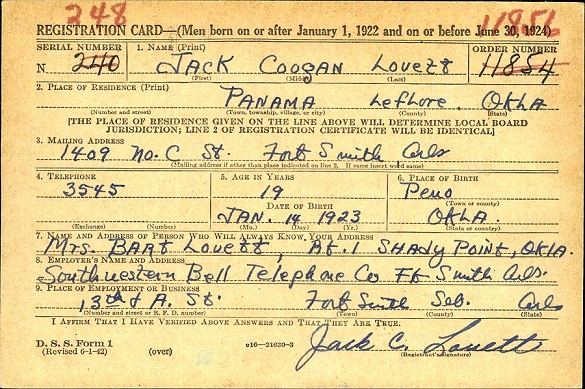 248 11856
REGISTRATION CARD—(Men born on or after January 1, 1922 and on or before June 30, 1924)
SERIAL NUMBER 1. NAME (Print) ORDER NUMBER
N 240 JACK COOGAN LOVETT 11854
(First) (Middle) (Last)
2. PLACE OF RESIDENCE (Print)
PANAMA LeFLORE OKLA
(Number and street) (Town, township, village, or city) (County) (State)
[THE PLACE OF RESIDENCE GIVEN ON THE LINE ABOVE WILL DETERMINE LOCAL BOARD
JURISDICTION; LINE 2 OF REGISTRATION CERTIFICATE WILL BE IDENTICAL]
3. MAILING ADDRESS
1409 No. C St. Fort Smith Ark
(Mailing address if other than place indicated on line 2. If same insert word same)
4. TELEPHONE 5. AGE IN YEARS 6. PLACE OF BIRTH
3545 19
DATE OF BIRTH (Town or county)
JAN. 14 1923 OKLA.
(Exchange) (Number) (Mo.) (Day) (Yr.) (State or country)
7. NAME AND ADDRESS OF PERSON WHO WILL ALWAYS KNOW YOUR ADDRESS
Mrs. BART LOVETT, Rt. 1 SHADY POINT, OKLA.
8. EMPLOYER'S NAME AND ADDRESS
Southwestern Bell Telephone Co Ft Smith Ark.
9. PLACE OF EMPLOYMENT OR BUSINESS
13th & A. St. Fort Smith Seb. Ark
(Number and street or R. F. D. number) (Town) (County) (State)
I AFFIRM THAT I HAVE VERIFIED ABOVE ANSWERS AND THAT THEY ARE TRUE.
D. S. S. Form 1
(Revised 6-1-42) (over) c16—21630-3 Jack C. Lovett
(Registrant's signature)